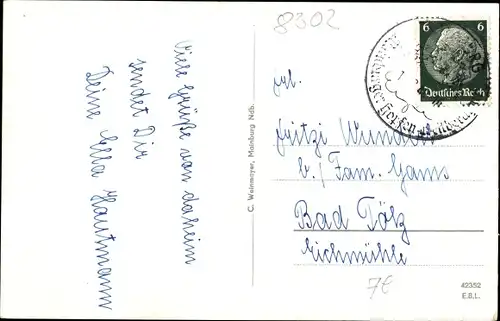 8302
Viele Grüße von daheim
sendet Dir
Deine Ella Hautmann
C. Weinmayer, Mainburg Ndb.
6 6
Deutsches Reich
Frl.
Fritzi Wunder
b./ Fam. Gams
Bad Tölz
Eichmühle
7€
42352
E.B.L.